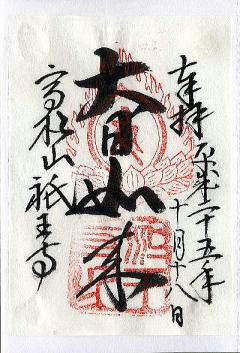 奉拝 平成二十五年
十月十八日
大日如来
高松山 祇王寺